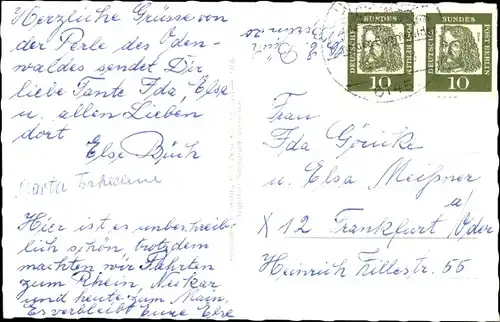 Herzliche Grüsse von
der Perle des Oden-
waldes sendet Dir
liebe Tante Ida, Else
u. allen Lieben
dort
Else Büch
Marta
Hier ist es unbeschreib-
lich schön, trotzdem
machten wir Fahrten
zum Rhein, Neckar
und heute zum Main.
Es verbleibt Eure Else
DEUTSCHE BUNDES POST BERLIN
10
DEUTSCHE BUNDES POST BERLIN
10
Frau
Ida Göricke
u. Elsa Meißner
X 12 Frankfurt a/Oder
Heinrich Zillestr. 55